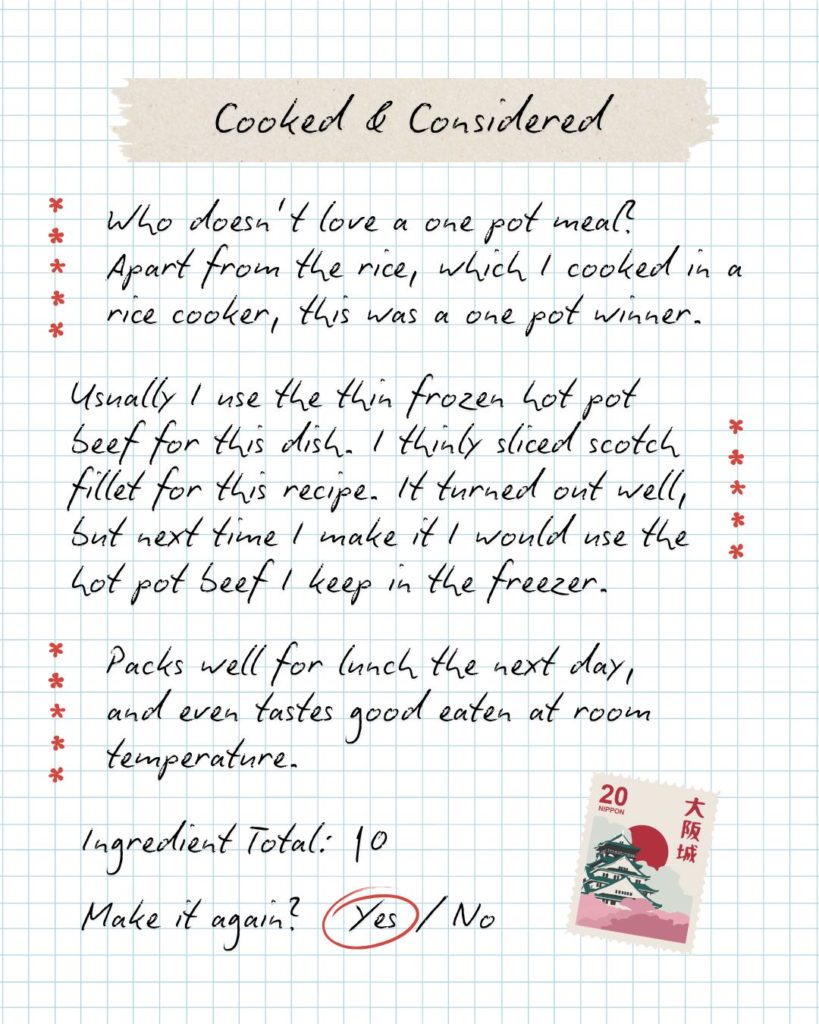 Cooked & Considered
Who doesn't love a one pot meal?
Apart from the rice, which I cooked in a
rice cooker, this was a one pot winner.
Usually I use the thin frozen hot pot
beef for this dish. I thinly sliced scotch
fillet for this recipe. It turned out well,
but next time I make it I would use the
hot pot beef I keep in the freezer.
Packs well for lunch the next day,
and even tastes good eaten at room
temperature.
Ingredient Total: 10
Make it again? Yes / No
20
NIPPON
大阪城